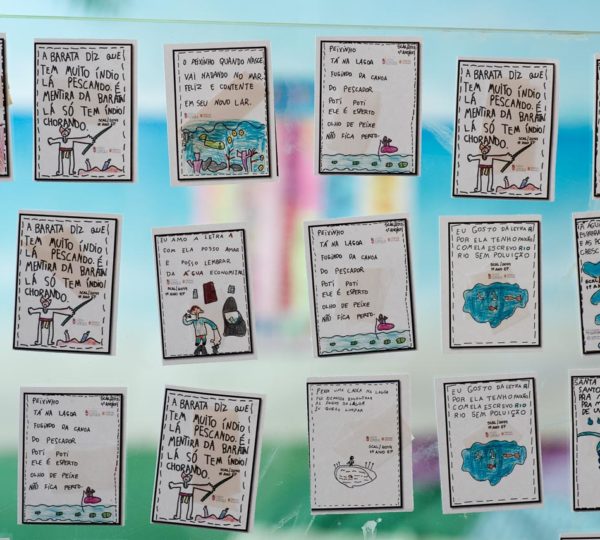 A BARATA DIZ QUE
TEM MUITO ÍNDIO
LÁ PESCANDO. É
MENTIRA DA BARATA
LÁ SÓ TEM ÍNDIO
CHORANDO.
O PEIXINHO QUANDO NASCE
VAI NADANDO NO MAR
FELIZ E CONTENTE
EM SEU NOVO LAR.
PEIXINHO
TÁ NA LAGOA
FUGINDO DA CANOA
DO PESCADOR
POTÍ POTÍ
ELE É ESPERTO
OLHO DE PEIXE
NÃO FICA PERTO
A BARATA DIZ QUE
TEM MUITO ÍNDIO
LÁ PESCANDO. É
MENTIRA DA BARATA
LÁ SÓ TEM ÍNDIO
CHORANDO.
A BARATA DIZ QUE
TEM MUITO ÍNDIO
LÁ PESCANDO. É
MENTIRA DA BARATA
LÁ SÓ TEM ÍNDIO
CHORANDO.
EU AMO A LETRA A
COM ELA POSSO AMAR
E POSSO LEMBRAR
DA ÁGUA ECONOMIZAR
PEIXINHO
TÁ NA LAGOA
FUGINDO DA CANOA
DO PESCADOR
POTÍ POTÍ
ELE É ESPERTO
OLHO DE PEIXE
NÃO FICA PERTO
EU GOSTO DA LETRA R
POR ELA TENHO PAIXÃO
COM ELA ESCREVO RIO
RIO SEM POLUIÇÃO
PEIXINHO
TÁ NA LAGOA
FUGINDO DA CANOA
DO PESCADOR
POTÍ POTÍ
ELE É ESPERTO
OLHO DE PEIXE
NÃO FICA PERTO
A BARATA DIZ QUE
TEM MUITO ÍNDIO
LÁ PESCANDO. É
MENTIRA DA BARATA
LÁ SÓ TEM ÍNDIO
CHORANDO.
EU GOSTO DA LETRA R
POR ELA TENHO PAIXÃO
COM ELA ESCREVO RIO
RIO SEM POLUIÇÃO